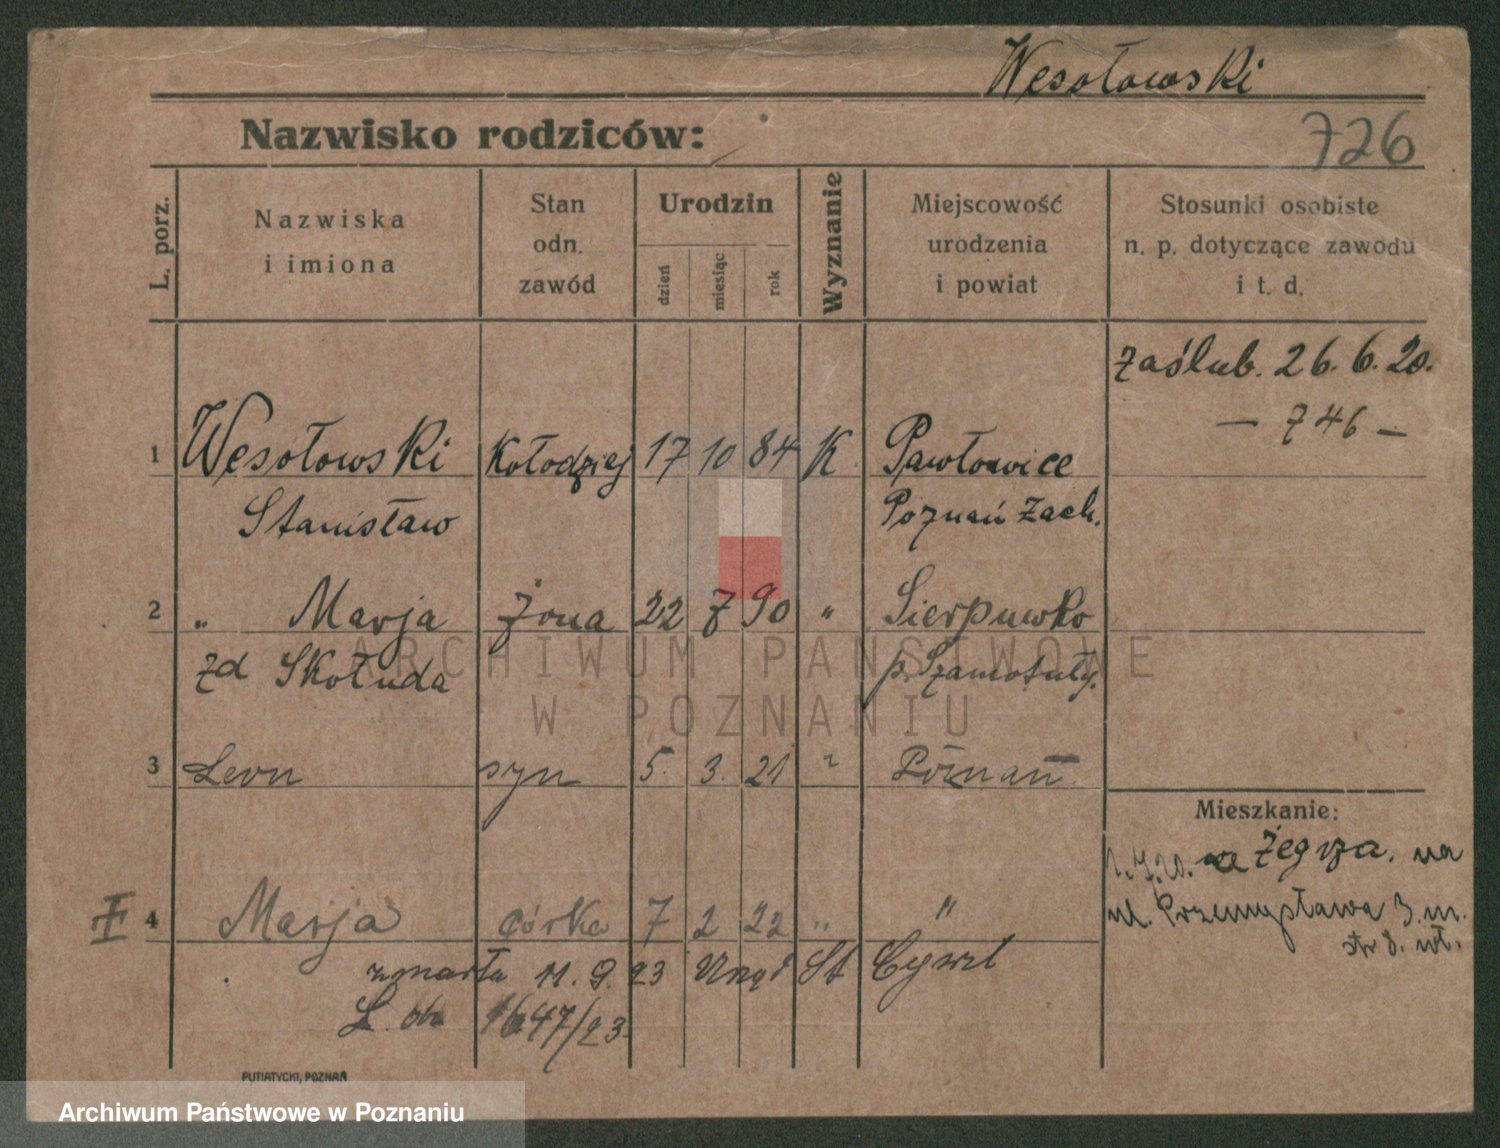 Wesołowski
Nazwisko rodziców:
726
L. porz.
Nazwiska
i imiona
Stan
odn.
zawód
Urodzin
dzień
miesiąc
rok
Wyznanie
Miejscowość
urodzenia
i powiat
Stosunki osobiste
n. p. dotyczące zawodu
i t. d.
zaślub. 26. 6. 20.
— 746 —
1 Wesołowski Kołodziej 17 10 84 K. Pawłowice
Stanisław Poznań Zach.
2 " Marja żona 22 7 90 " Sierpuwko
zd Skołuda p. Szamotuły.
3 Leon syn 5. 3. 21 " Poznań
Mieszkanie:
1.7.20. Żegrza. na
ul. Przemysława 3. m.
4 Marja córka 7 2 22 " "
str 8. wł.
zmarła 11. 9. 23 Urząd St Cywil
L. 1647/23.
PUTIATYCKI, POZNAŃ
ARCHIWUM PAŃSTWOWE
W POZNANIU
Archiwum Państwowe w Poznaniu